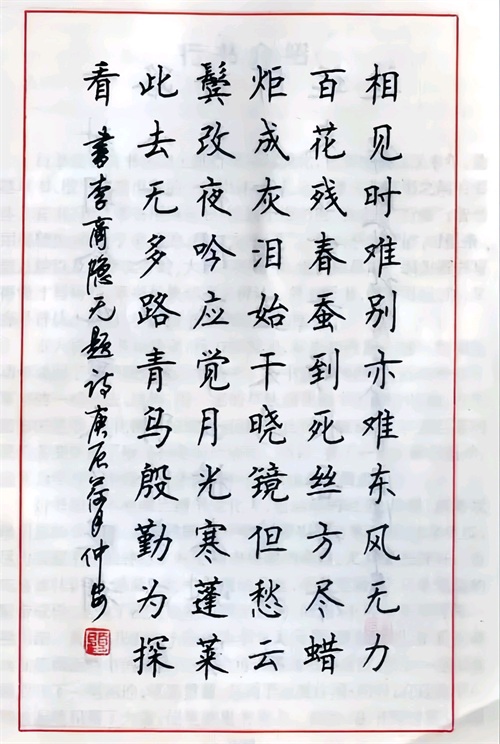 相见时难别亦难东风无力
百花残春蚕到死丝方尽蜡
炬成灰泪始干晓镜但愁云
鬓改夜吟应觉月光寒蓬莱
此去无多路青鸟殷勤为探
看 书李商隐无题诗庚辰荷月仲安